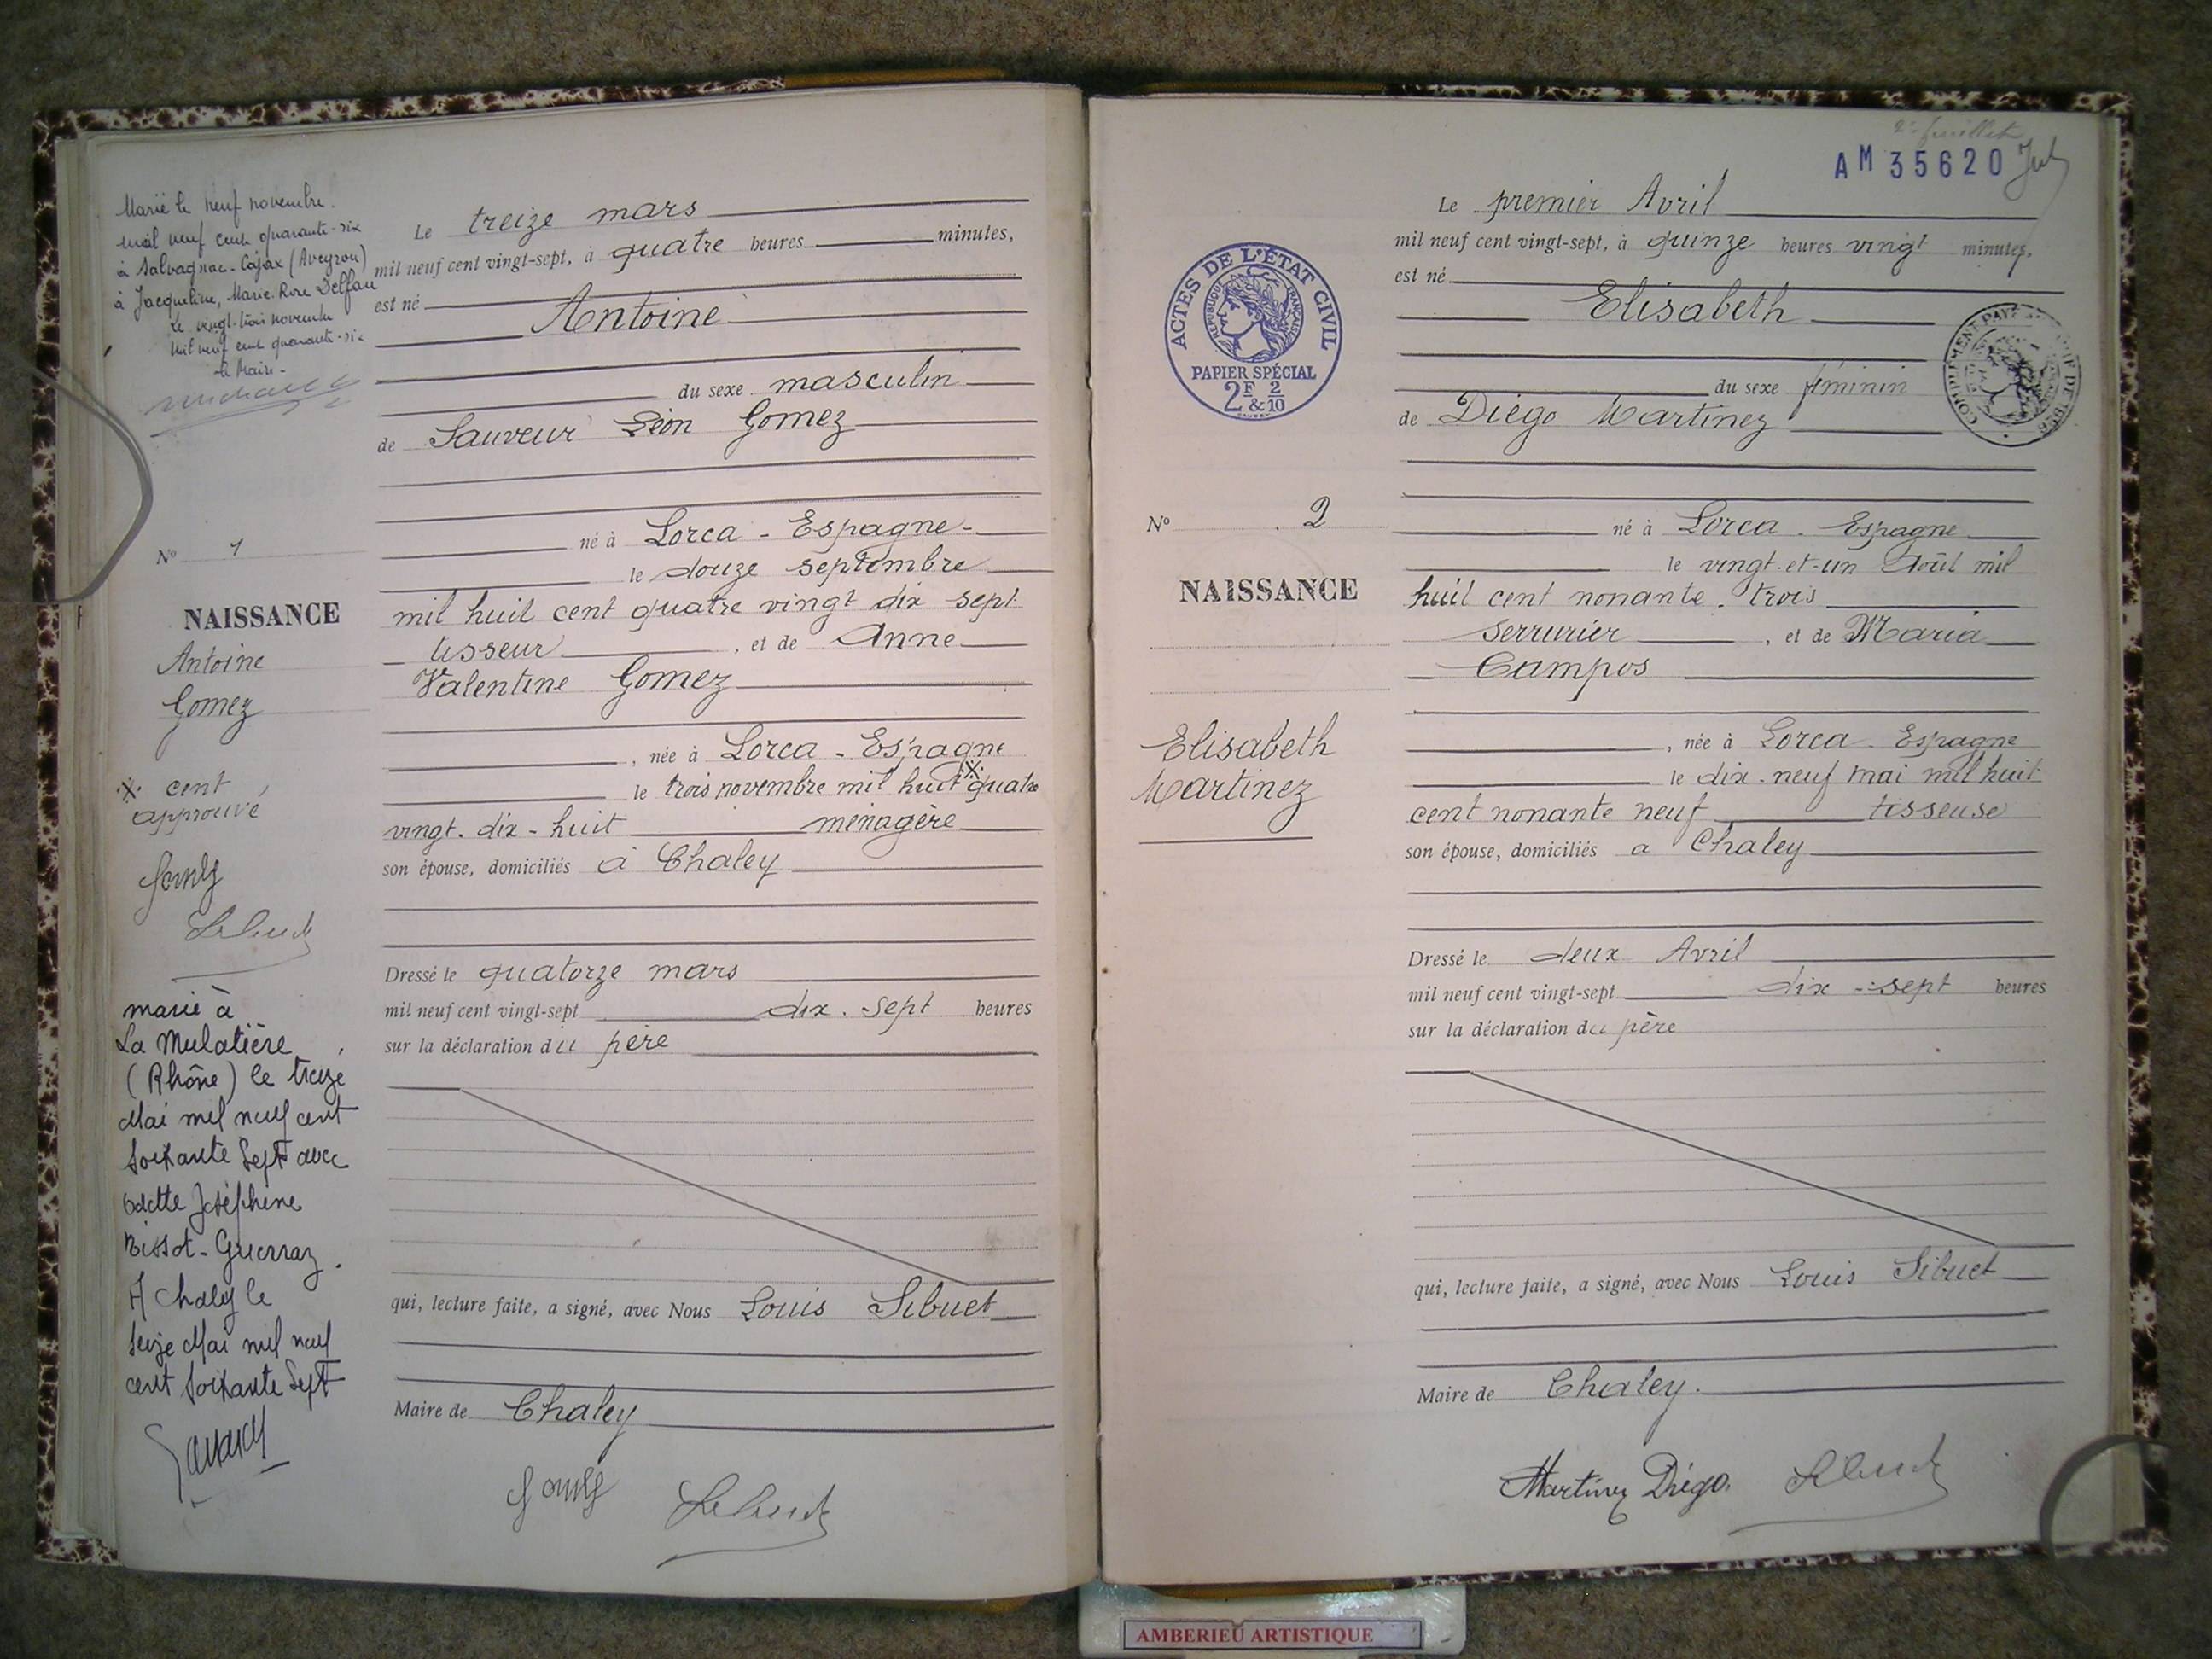 Marié le neuf novembre
mil neuf cent quarante-six
à Salvagnac-Cajarc (Aveyron)
à Jacqueline, Marie-Rose Delfau
Le vingt-trois novembre
Mil neuf cent quarante-six
Le Maire-
Nº 1
NAISSANCE
Antoine
Gomez
X cent
approuvé
marié à
La Mulatière
(Rhône) le treize
Mai mil neuf cent
soixante sept avec
Odette Joséphine
Bissot-Guerraz.
A Chaley le
seize Mai mil neuf
cent soixante sept
Le treize mars
mil neuf cent vingt-sept, à quatre heures minutes,
est né
Antoine
du sexe masculin
de Sauveur Léon Gomez
né à Lorca - Espagne-
le douze septembre
mil huit cent quatre vingt dix sept
tisseur, et de Anne
Valentine Gomez
, née à Lorca - Espagne
le trois novembre mil huit X quatre
vingt-dix-huit ménagère
son épouse, domiciliés à Chaley
Dressé le quatorze mars
mil neuf cent vingt-sept dix-sept heures
sur la déclaration du père
qui, lecture faite, a signé, avec Nous Louis Sibuet
Maire de Chaley
2e feuillet
AM 35620
ACTES DE L'ÉTAT CIVIL
RÉPUBLIQUE FRANÇAISE
PAPIER SPÉCIAL
2F & 2/10
Nº 2
NAISSANCE
Elisabeth
Martinez
Le premier Avril
mil neuf cent vingt-sept, à quinze heures vingt minutes,
est né
Elisabeth
COMPLÉMENT PAYÉ
du sexe féminin
de Diégo Martinez
né à Lorca - Espagne
le vingt-et-un Août mil
huit cent nonante-trois
serrurier, et de Maria
Campos
, née à Lorca - Espagne
le dix-neuf mai mil huit
cent nonante neuf tisseuse
son épouse, domiciliés a Chaley
Dressé le deux Avril
mil neuf cent vingt-sept dix-sept heures
sur la déclaration du père
qui, lecture faite, a signé, avec Nous Louis Sibuet
Maire de Chaley.
Martinez Diégo.
AMBERIEU ARTISTIQUE